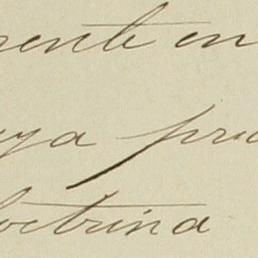 rente en
ya pru
doctrina